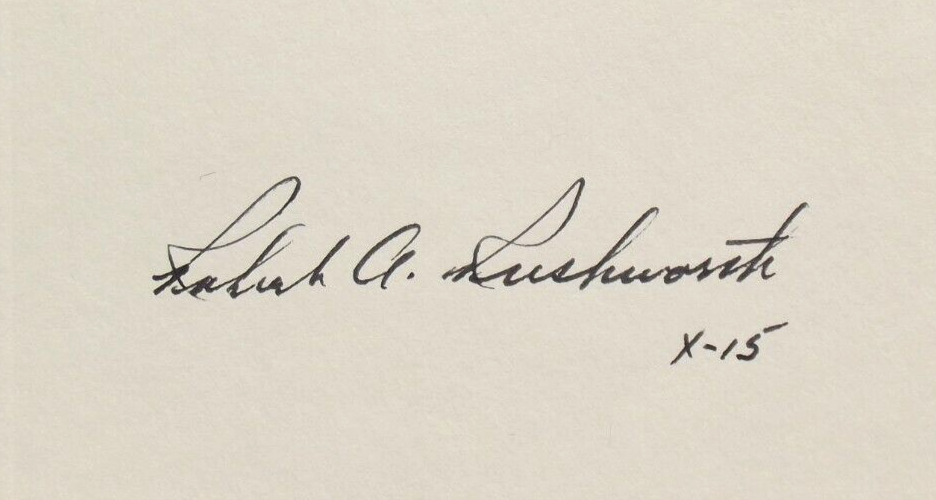 Robert A. Rushworth
X-15